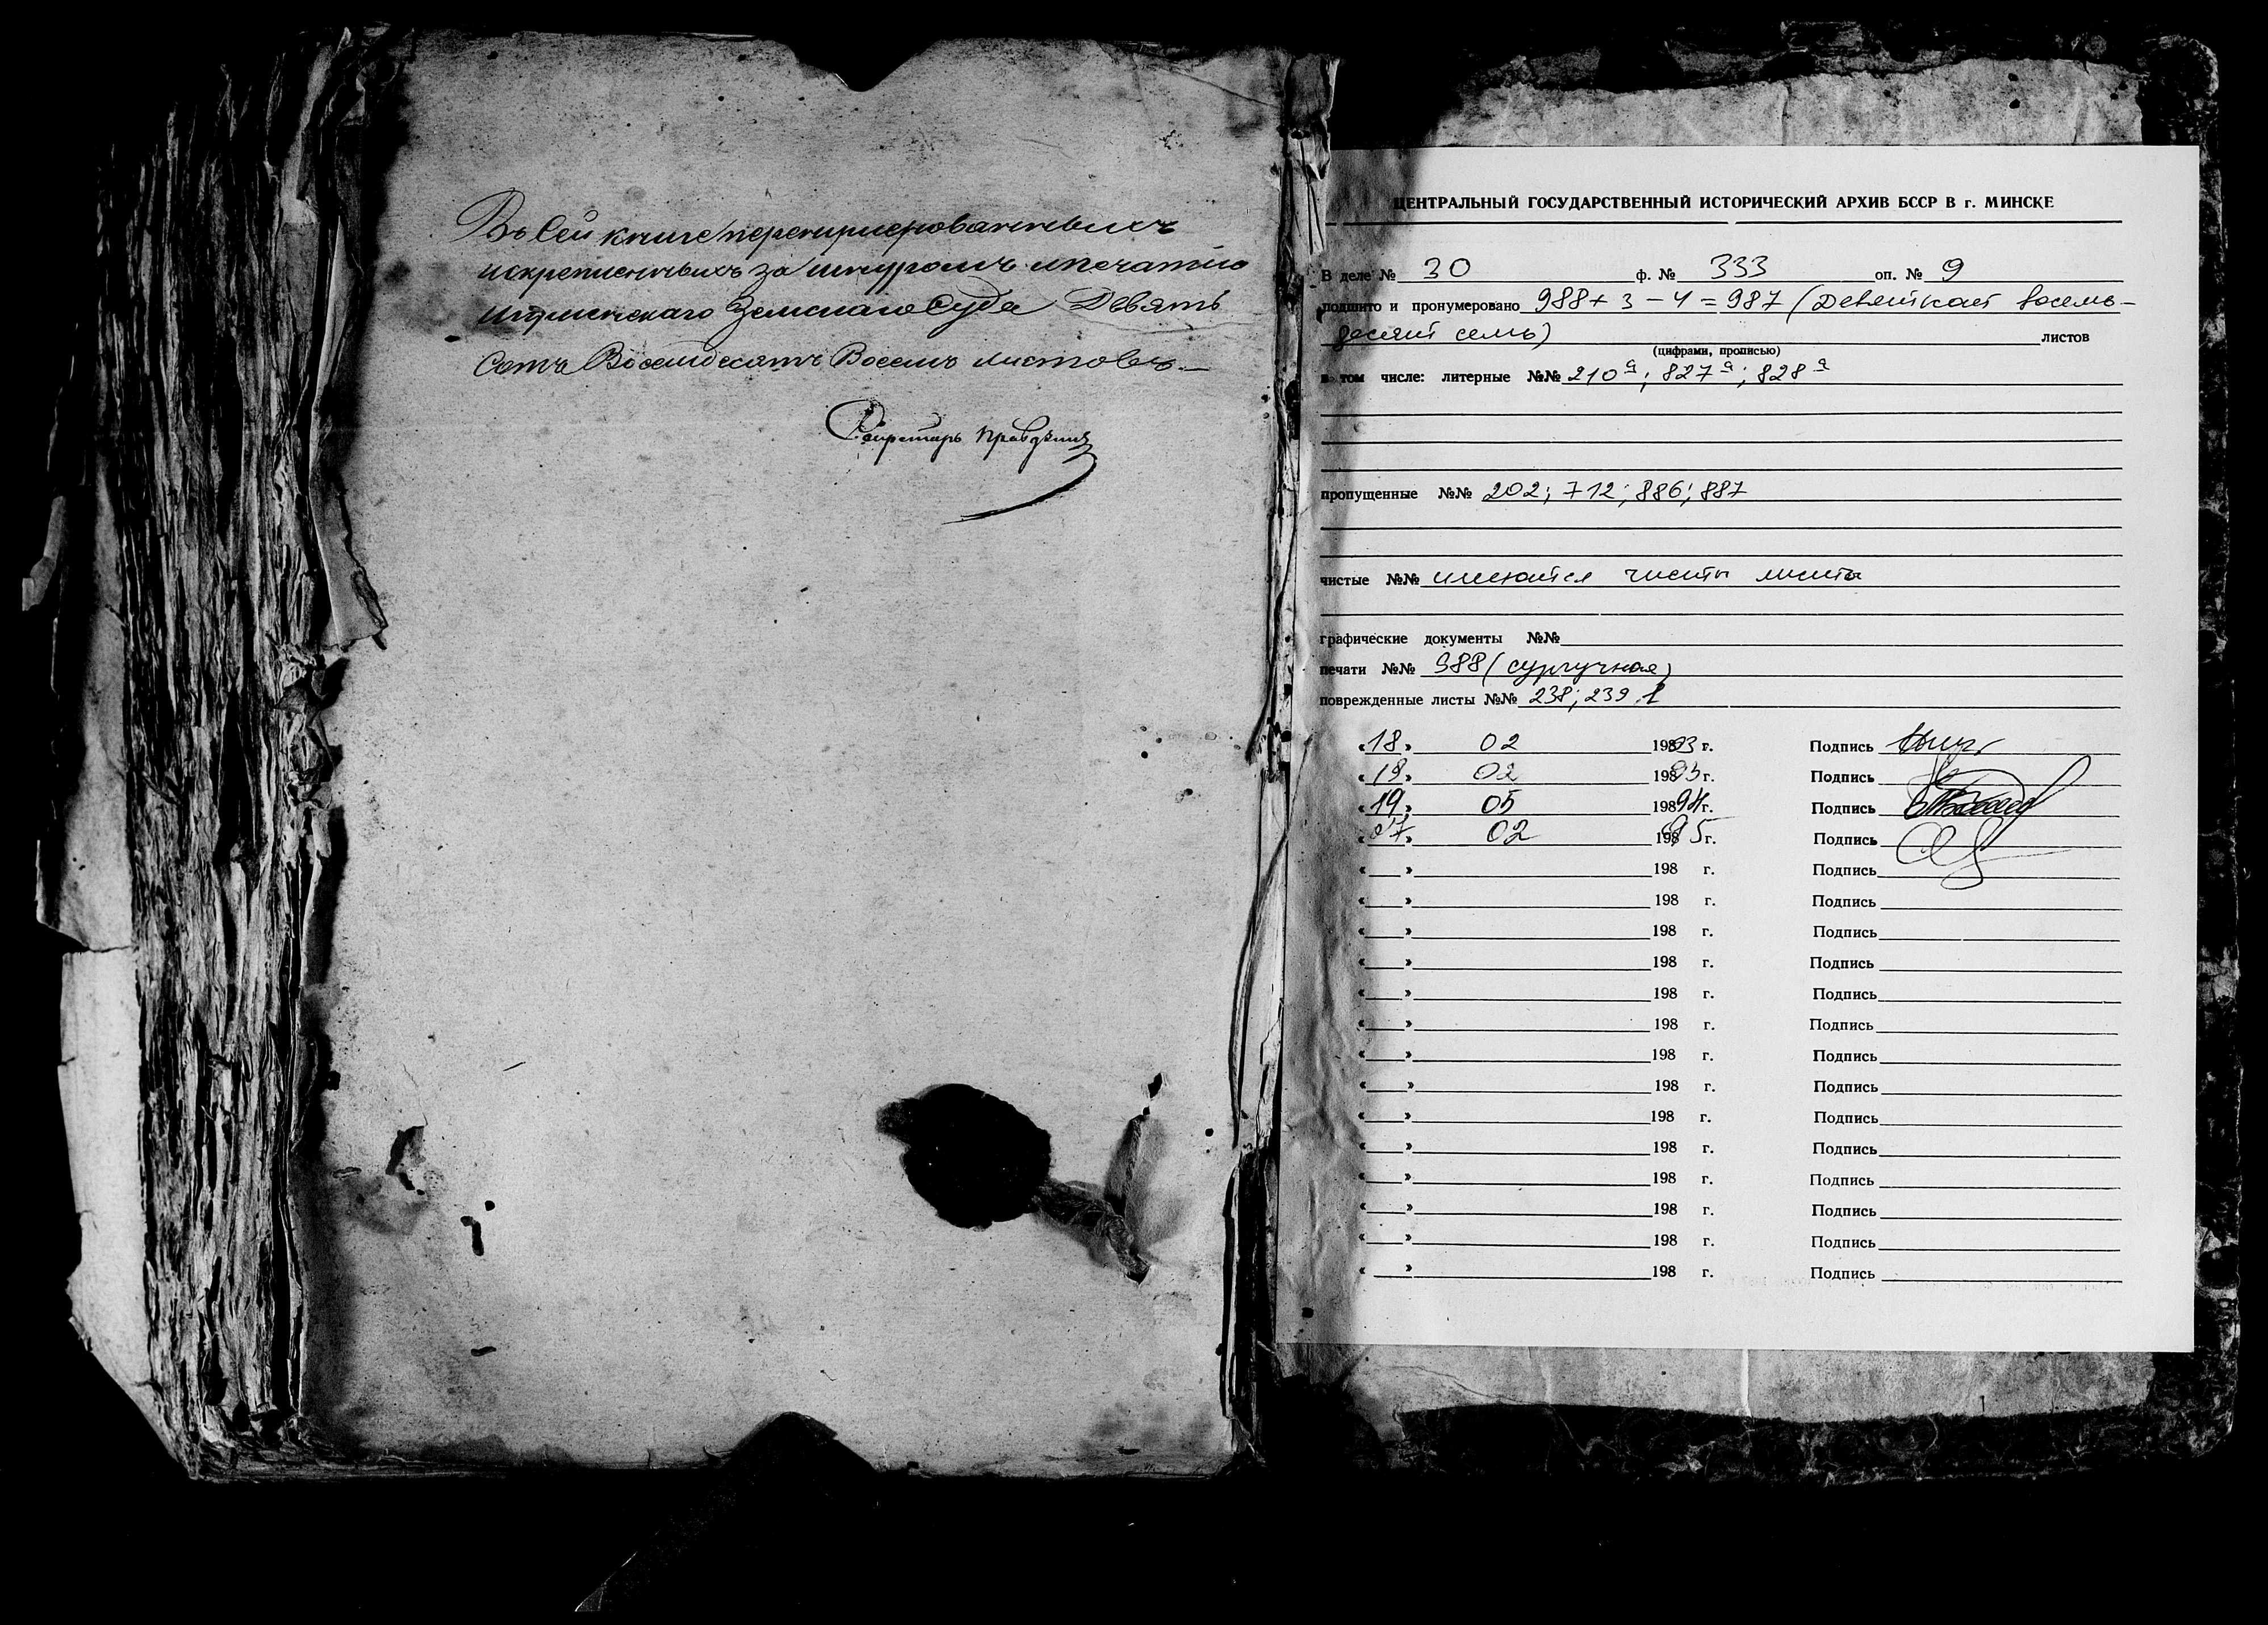 Въ сей книге перенумерованныхъ
искрепленныхъ за шнуромъ ипечатью
Земскаго Суда Девять
сотъ Восемдесятъ Восемь листовъ.
Секретарь
ЦЕНТРАЛЬНЫЙ ГОСУДАРСТВЕННЫЙ ИСТОРИЧЕСКИЙ АРХИВ БССР В г. МИНСКЕ
В деле № 30 ф. № 333 оп. № 9
подшито и пронумеровано 988 + 3 - 4 = 987 (девятьсот восемь-
десят семь) листов
(цифрами, прописью)
в том числе: литерные №№ 210а; 827а; 828а
пропущенные №№ 202; 712; 886; 887
чистые №№ имеются чисты листы
графические документы №№
печати №№ 988 (сургучная)
поврежденные листы №№ 238; 239
«18» 02 19893 г. Подпись
«19» 02 19893 г. Подпись
«19» 05 19894 г. Подпись
«27» 02 19895 г. Подпись
«__» 198 г. Подпись
«__» 198 г. Подпись
«__» 198 г. Подпись
«__» 198 г. Подпись
«__» 198 г. Подпись
«__» 198 г. Подпись
«__» 198 г. Подпись
«__» 198 г. Подпись
«__» 198 г. Подпись
«__» 198 г. Подпись
«__» 198 г. Подпись
«__» 198 г. Подпись
«__» 198 г. Подпись
«__» 198 г. Подпись